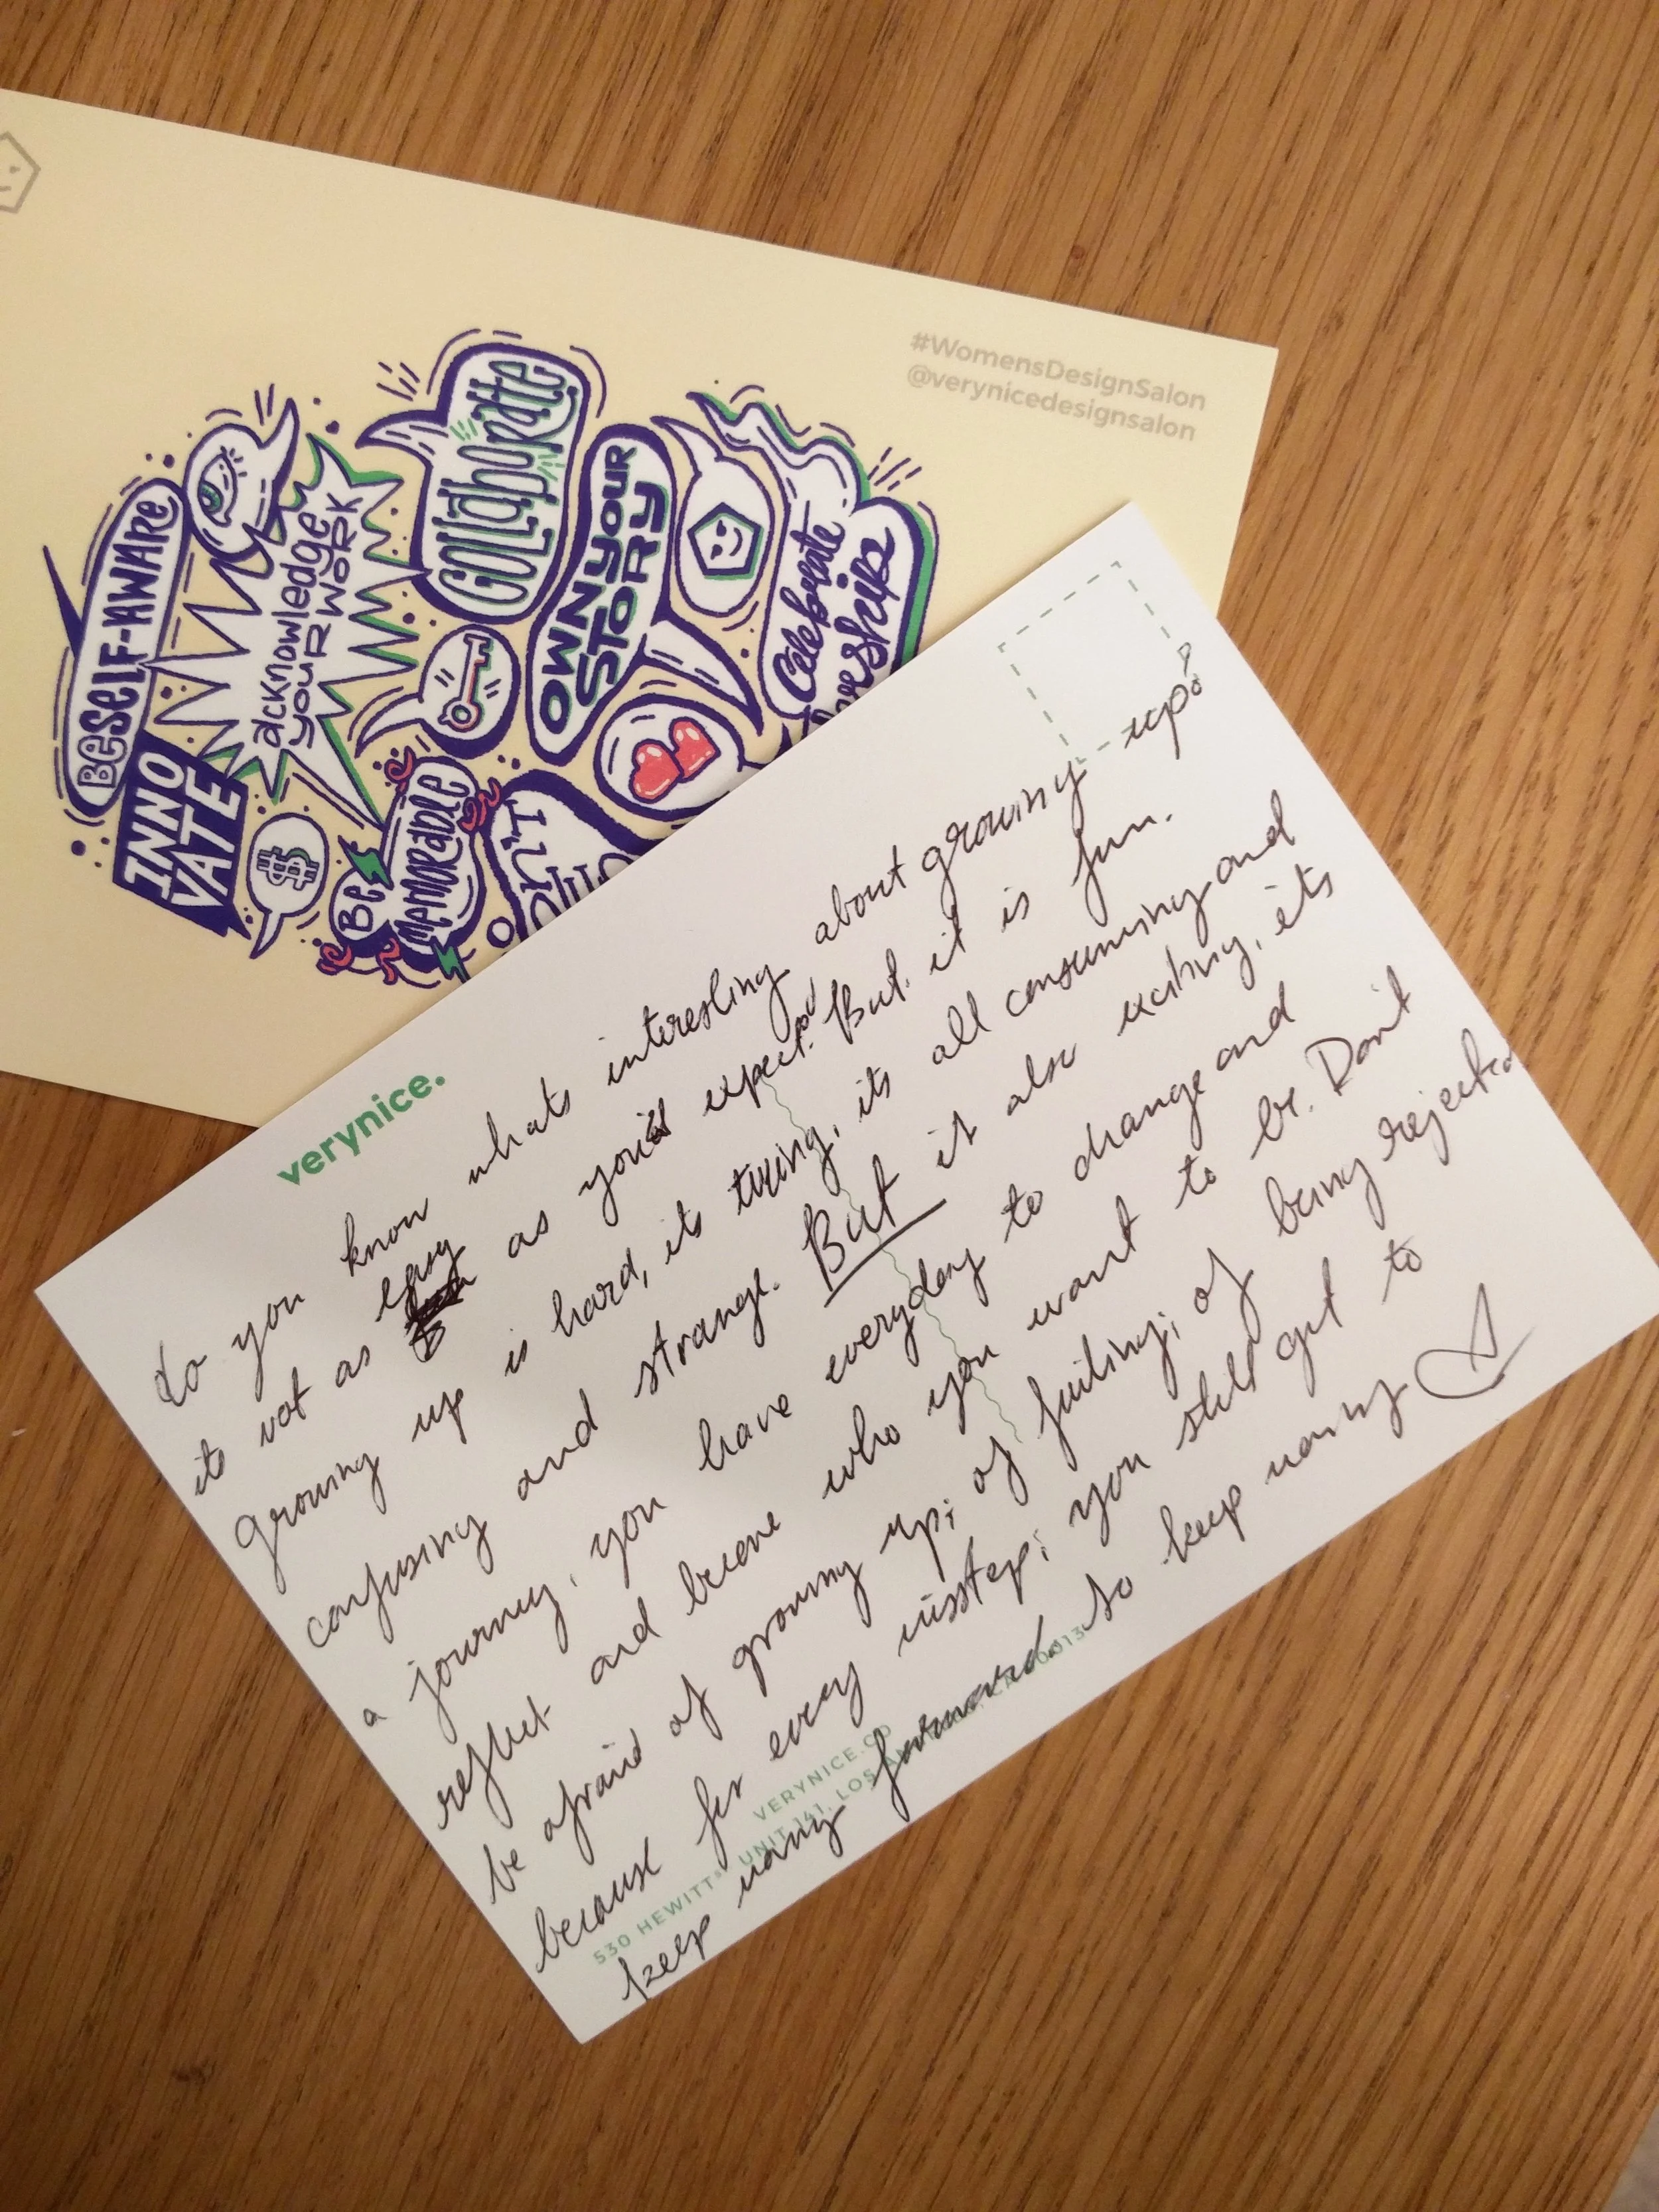 #WomensDesignSalon
@verynicedesignsalon
BE SELF-AWARE
acknowledge
your
work
COllaborate
OWN YOUR
STORY
Celebrate
INNO
VATE
$
Be
memorable
verynice.
do you know whats interesting about growing up?
its not as easy as you'd expect. But it is fun.
Growing up is hard, its tiring, its all consuming and
confusing and strange. But it also exciting, its
a journey, you have everyday to change and
reflect and become who you want to be. Don't
be afraid of growing up; of failing; of being rejected
because for every misstep; you still get to
keep moving forward. So keep moving
VERYNICE.CO
530 HEWITT ST, UNIT 141, LOS